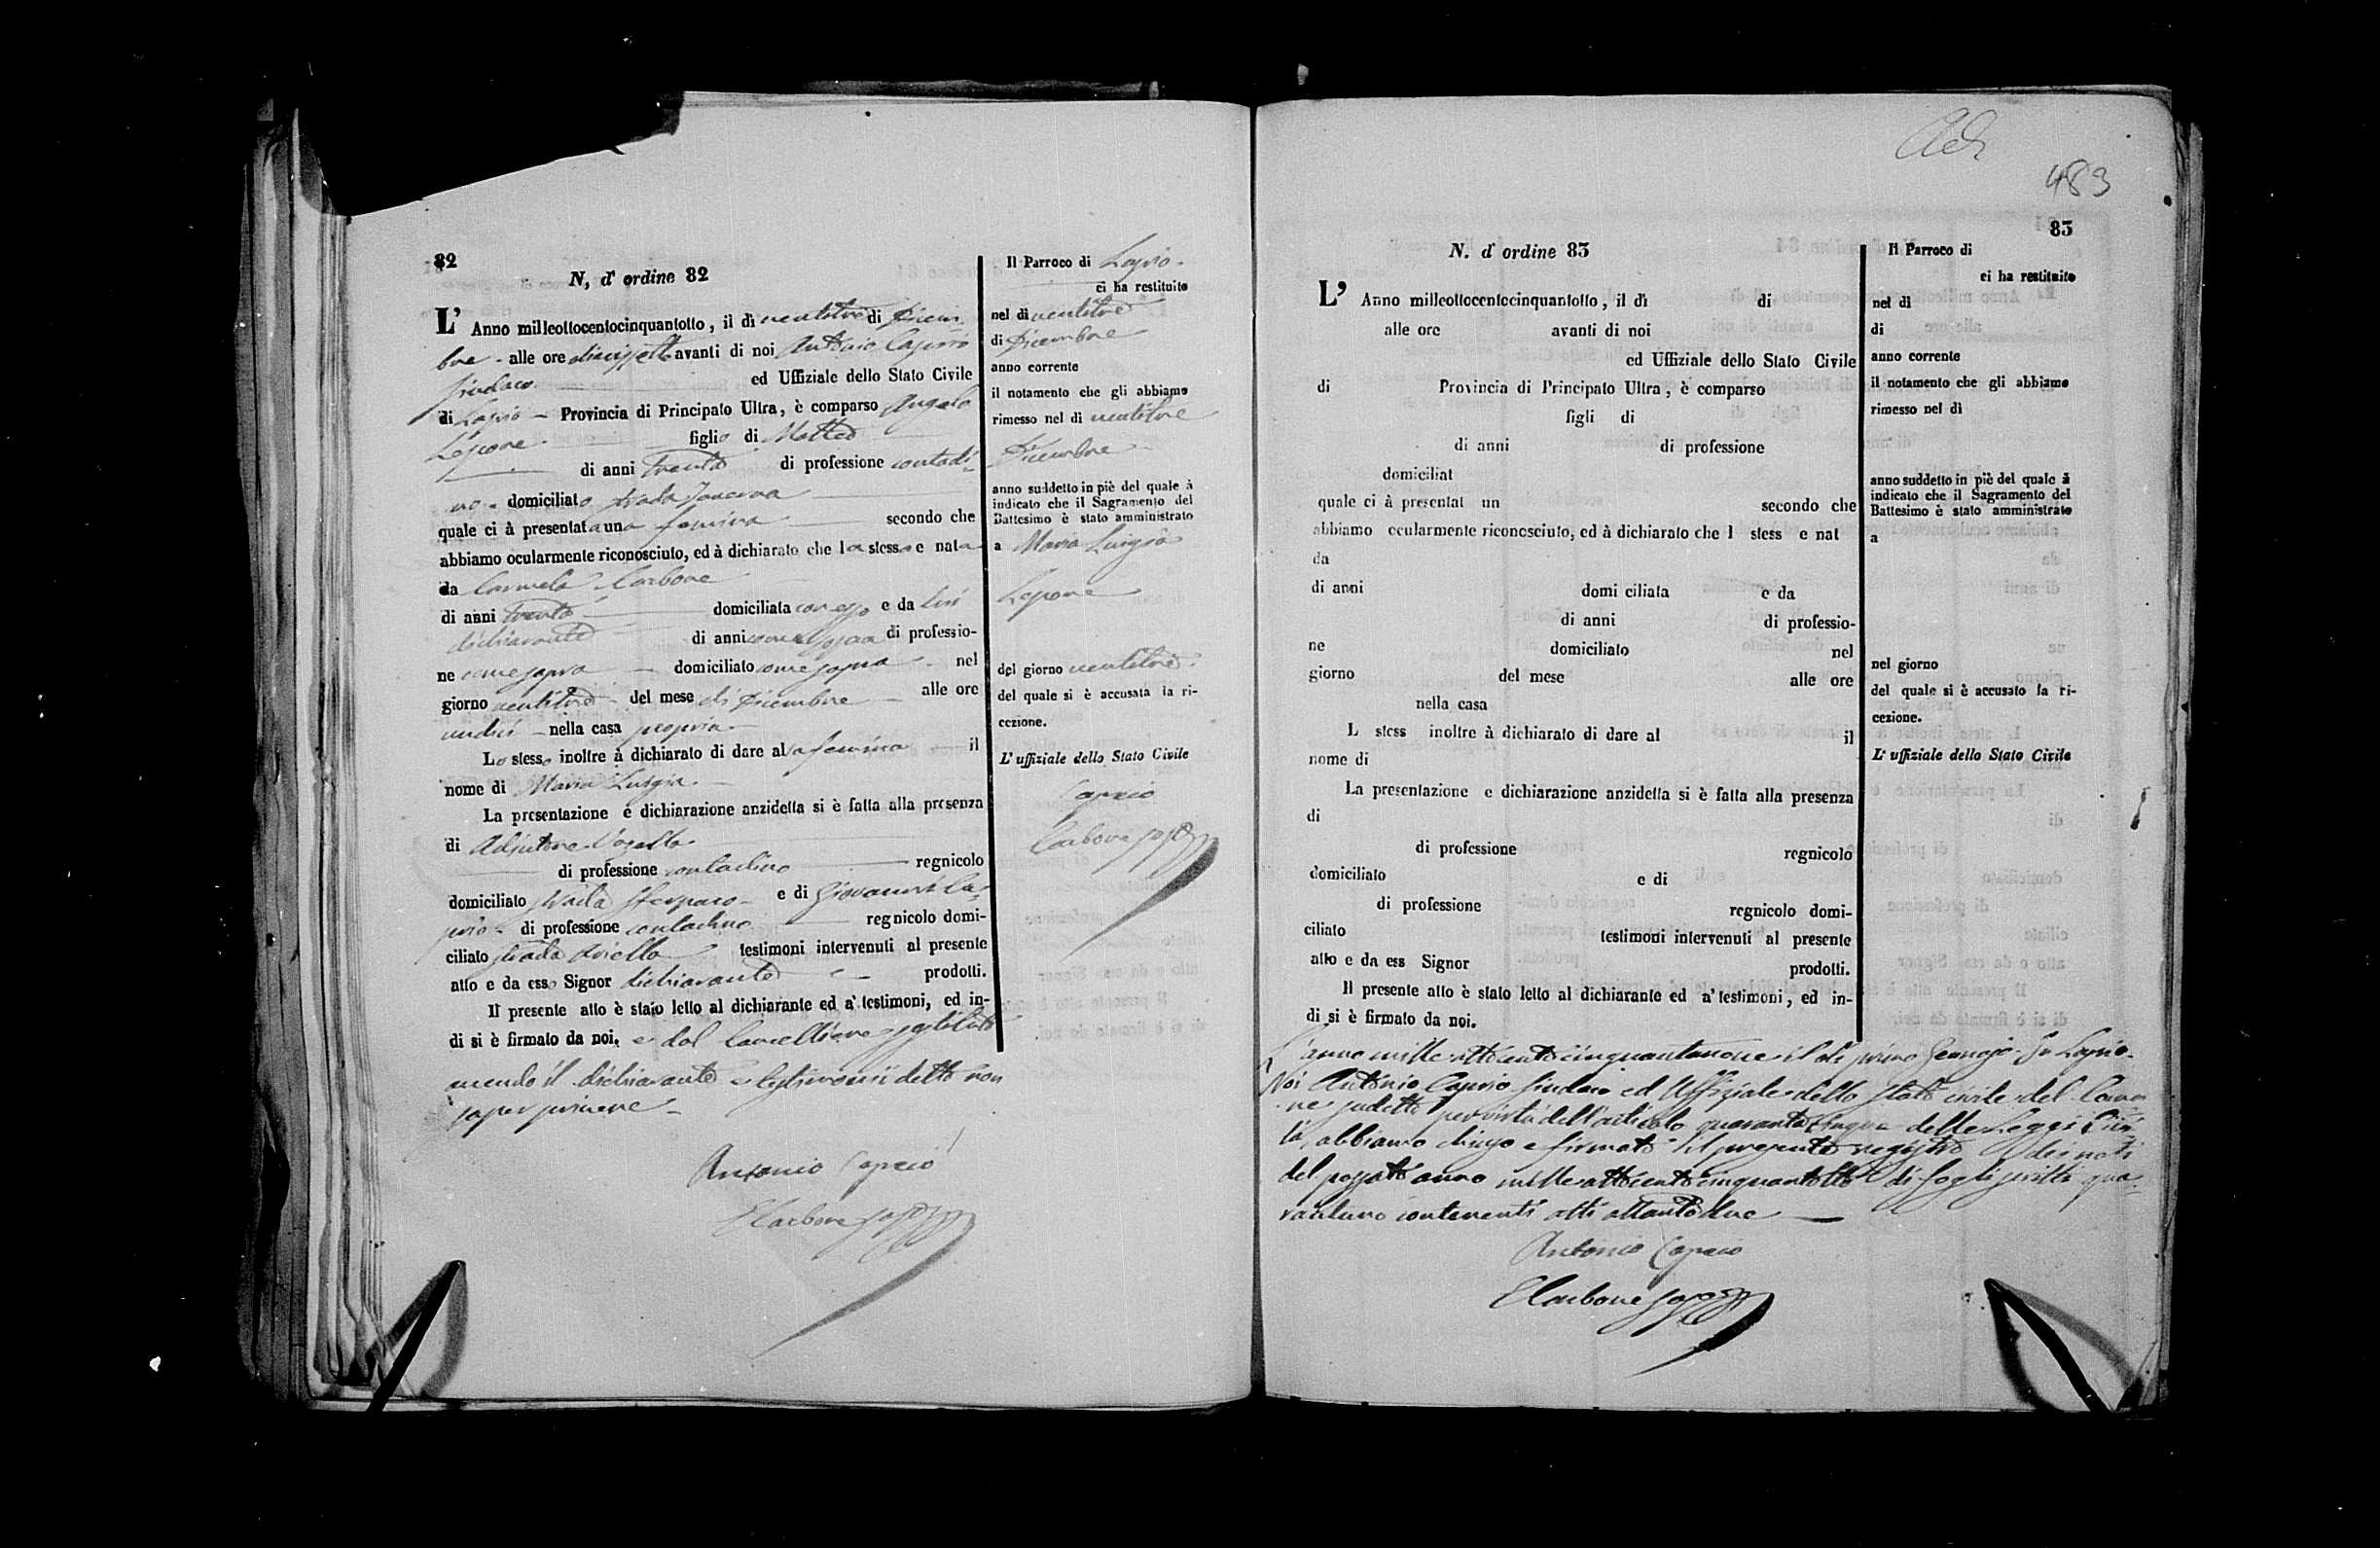 82
N, d' ordine 82
L' Anno milleottocentocinquantotto, il dì ventitre di Dicem-
bre - alle ore diciassette avanti di noi Antonio Caprio
Sindaco ed Uffiziale dello Stato Civile
di Lapio - Provincia di Principato Ultra, è comparso Angelo
Lepore figlio di Matteo
di anni trenta di professione contadi-
no - domiciliato strada
quale ci à presentata una femina secondo che
abbiamo ocularmente riconosciuto, ed à dichiarato che la stessa e nata
da Carmela Carbone
di anni trenta domiciliata con esso e da lui
dichiarante di anni come sopra di professio-
ne come sopra - domiciliato come sopra - nel
giorno ventitre - del mese di Dicembre - alle ore
undici - nella casa propria
Lo stesso inoltre à dichiarato di dare alla femina il
nome di Maria Luigia
La presentazione e dichiarazione anzidetta si è fatta alla presenza
di Adjutore
di professione contadino regnicolo
domiciliato strada e di Giovanni Ca-
prio - di professione contadino regnicolo domi-
ciliato strada testimoni intervenuti al presente
atto e da esso Signor dichiarante prodotti.
Il presente atto è stato letto al dichiarante ed a' testimoni, ed in-
di si è firmato da noi, e dal Cancelliere sostituto
avendo il dichiarante e testimonii detto non
saper scrivere -
Antonio Caprio
Carbone
Il Parroco di Lapio -
ci ha restituito
nel dì ventitre
di Dicembre
anno corrente
il notamento che gli abbiamo
rimesso nel dì ventitre
Dicembre
anno suddetto in piè del quale à
indicato che il Sagramento del
Battesimo è stato amministrato
a Maria Luigia
Lepore
del giorno ventitre
del quale si è accusata la ri-
cezione.
L' uffiziale dello Stato Civile
Caprio
Carbone
483
83
N. d' ordine 83
L' Anno milleottocentocinquantotto, il dì di
alle ore avanti di noi
ed Uffiziale dello Stato Civile
di Provincia di Principato Ultra, è comparso
figli di
di anni di professione
domiciliat
quale ci à presentat un secondo che
abbiamo ocularmente riconosciuto, ed à dichiarato che l stess e nat
da
di anni domi ciliata e da
di anni di professio-
ne domiciliato nel
giorno del mese alle ore
nella casa
L stess inoltre à dichiarato di dare al il
nome di
La presentazione e dichiarazione anzidetta si è fatta alla presenza
di
di professione regnicolo
domiciliato e di
di professione regnicolo domi-
ciliato testimoni intervenuti al presente
atto e da ess Signor prodotti.
Il presente atto è stato letto al dichiarante ed a' testimoni, ed in-
di si è firmato da noi.
Il Parroco di
ci ha restituito
nel dì
di
anno corrente
il notamento che gli abbiamo
rimesso nel dì
anno suddetto in piè del quale à
indicato che il Sagramento del
Battesimo è stato amministrato
a
nel giorno
del quale si è accusato la ri-
cezione.
L' uffiziale dello Stato Civile
L'anno mille ottocento cinquantanove il dì primo Gennajo. In Lapio.
Noi Antonio Caprio Sindaco ed Uffiziale dello Stato civile del Comu
ne sudetto per virtù dell'articolo quaranta cinque delle Leggi Civi
li, abbiamo chiuso e firmato il presente registro dei nati
del passato anno mille ottocento cinquantotto di fogli scritti qua-
rantuno contenenti atti ottantadue
Antonio Caprio
Carbone